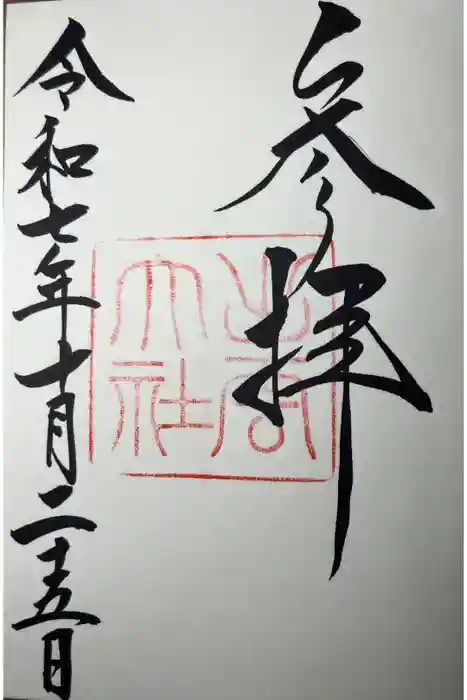 参拝
出雲大社
令和七年十月二十五日